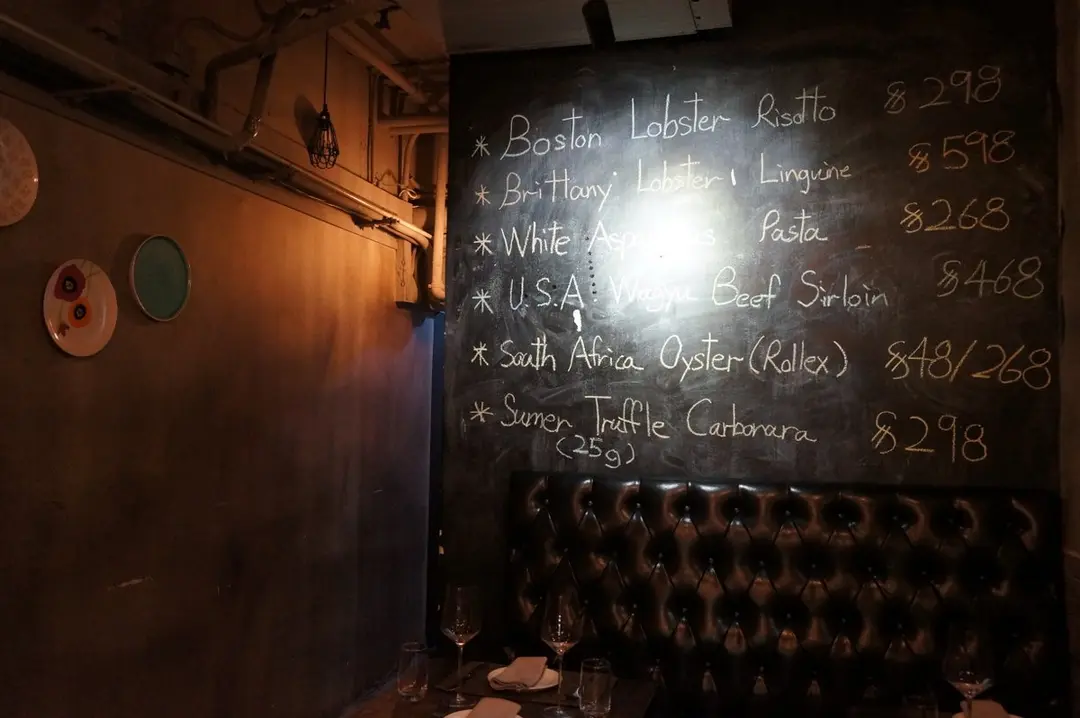 * Boston Lobster Risotto $298
* Brittany Lobster Linguine $598
* White Asparagus Pasta $268
* U.S.A. Wagyu Beef Sirloin $468
* South Africa Oyster (Rollex) $48/268
* Sumer Truffle Carbonara $298
(25g)